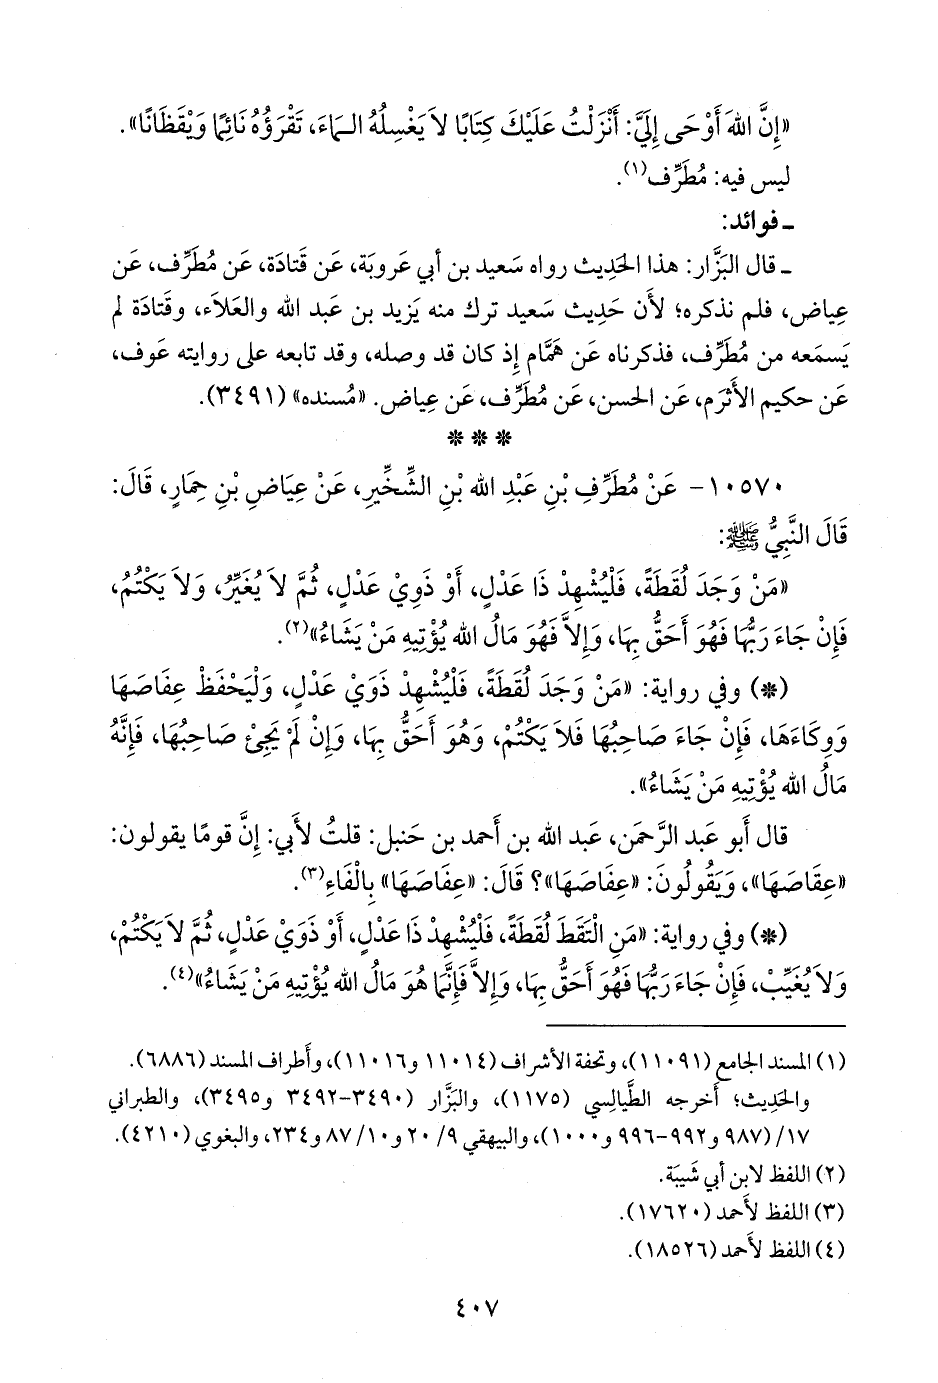 «إِنَّ اللهَ أَوْحَى إِلَيَّ: أَنْزَلْتُ عَلَيْكَ كِتَابًا لاَ يَغْسِلُهُ الـمَاءَ، تَقْرَؤُهُ نَائِمًا وَيَقْظَانًا».
ليس فيه: مُطَرِّف(١).
ـ فوائد:
ـ قال البَزَّار: هذا الحَدِيث رواه سَعيد بن أبي عَروبَة، عَن قَتادَة، عَن مُطَرِّف، عَن
عِياض، فلم نذكره؛ لأَن حَدِيث سَعيد ترك منه يَزيد بن عَبد الله والعَلاَء، وقَتادَة لم
يَسمَعه من مُطَرِّف، فذكرناه عَن هَمَّام إِذ كان قد وصله، وقد تابعه على روايته عَوف،
عَن حكيم الأَثرَم، عَن الحَسن، عَن مُطَرِّف، عَن عِياض. «مُسنده» (٣٤٩١).
* * *
١٠٥٧٠- عَنْ مُطَرِّفِ بْنِ عَبْدِ الله بْنِ الشِّخِّيرِ، عَنْ عِيَاضِ بْنِ حِمَارٍ، قَالَ:
قَالَ النَّبِيُّ ﷺ:
«مَنْ وَجَدَ لُقَطَةً، فَلْيُشْهِدْ ذَا عَدْلٍ، أَوْ ذَوِيْ عَدْلٍ، ثُمَّ لاَ يُغَيِّرُ، وَلاَ يَكْتُمُ،
فَإِنْ جَاءَ رَبُّهَا فَهُوَ أَحَقُّ بِهَا، وَإِلاَّ فَهُوَ مَالُ الله يُؤْتِيهِ مَنْ يَشَاءُ»(٢).
(*) وفي رواية: «مَنْ وَجَدَ لُقَطَةً، فَلْيُشْهِدْ ذَوَيْ عَدْلٍ، وَلْيَحْفَظْ عِفَاصَهَا
وَوِكَاءَهَا، فَإِنْ جَاءَ صَاحِبُهَا فَلاَ يَكْتُمْ، وَهُوَ أَحَقُّ بِهَا، وَإِنْ لَمْ يَجِئْ صَاحِبُهَا، فَإِنَّهُ
مَالُ الله يُؤْتِيهِ مَنْ يَشَاءُ».
قال أَبو عَبد الرَّحمَن، عَبد الله بن أَحمد بن حَنبل: قلتُ لأَبي: إِنَّ قومًا يقولون:
«عِقَاصَهَا»، وَيَقُولُونَ: «عِفَاصَهَا»؟ قَالَ: «عِفَاصَهَا» بِالْفَاءِ(٣).
(*) وفي رواية: «مَنِ الْتَقَطَ لُقَطَةً، فَلْيُشْهِدْ ذَا عَدْلٍ، أَوْ ذَوَيْ عَدْلٍ، ثُمَّ لاَ يَكْتُمْ،
وَلاَ يُغَيِّبْ، فَإِنْ جَاءَ رَبُّهَا فَهُوَ أَحَقُّ بِهَا، وَإِلاَّ فَإِنَّمَا هُوَ مَالُ الله يُؤْتِيهِ مَنْ يَشَاءُ»(٤).
(١) المسند الجامع (١١٠٩١)، وتحفة الأشراف (١١٠١٤ و١١٠١٦)، وأَطراف المسند (٦٨٨٦).
والحَدِيث؛ أَخرجه الطَّيالِسي (١١٧٥)، والبَزَّار (٣٤٩٠-٣٤٩٢ و٣٤٩٥)، والطبراني
١٧/ (٩٨٧ و٩٩٢-٩٩٦ و١٠٠٠)، والبيهقي ٩/ ٢٠ و١٠/ ٨٧ و٢٣٤، والبغوي (٤٢١٠).
(٢) اللفظ لابن أبي شَيبَة.
(٣) اللفظ لأَحمد (١٧٦٢٠).
(٤) اللفظ لأَحمد (١٨٥٢٦).
٤٠٧